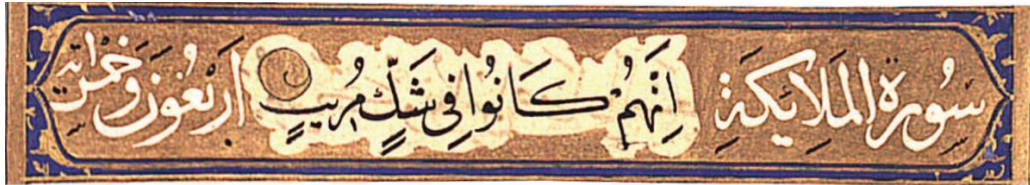 سُورَة المَلَايِكَةِ اِنَّهُمْ كَانُوا فِى شَكٍّ مُرِيبٍ اَرْبَعُونَ وَخَمْسُ اٰيَات